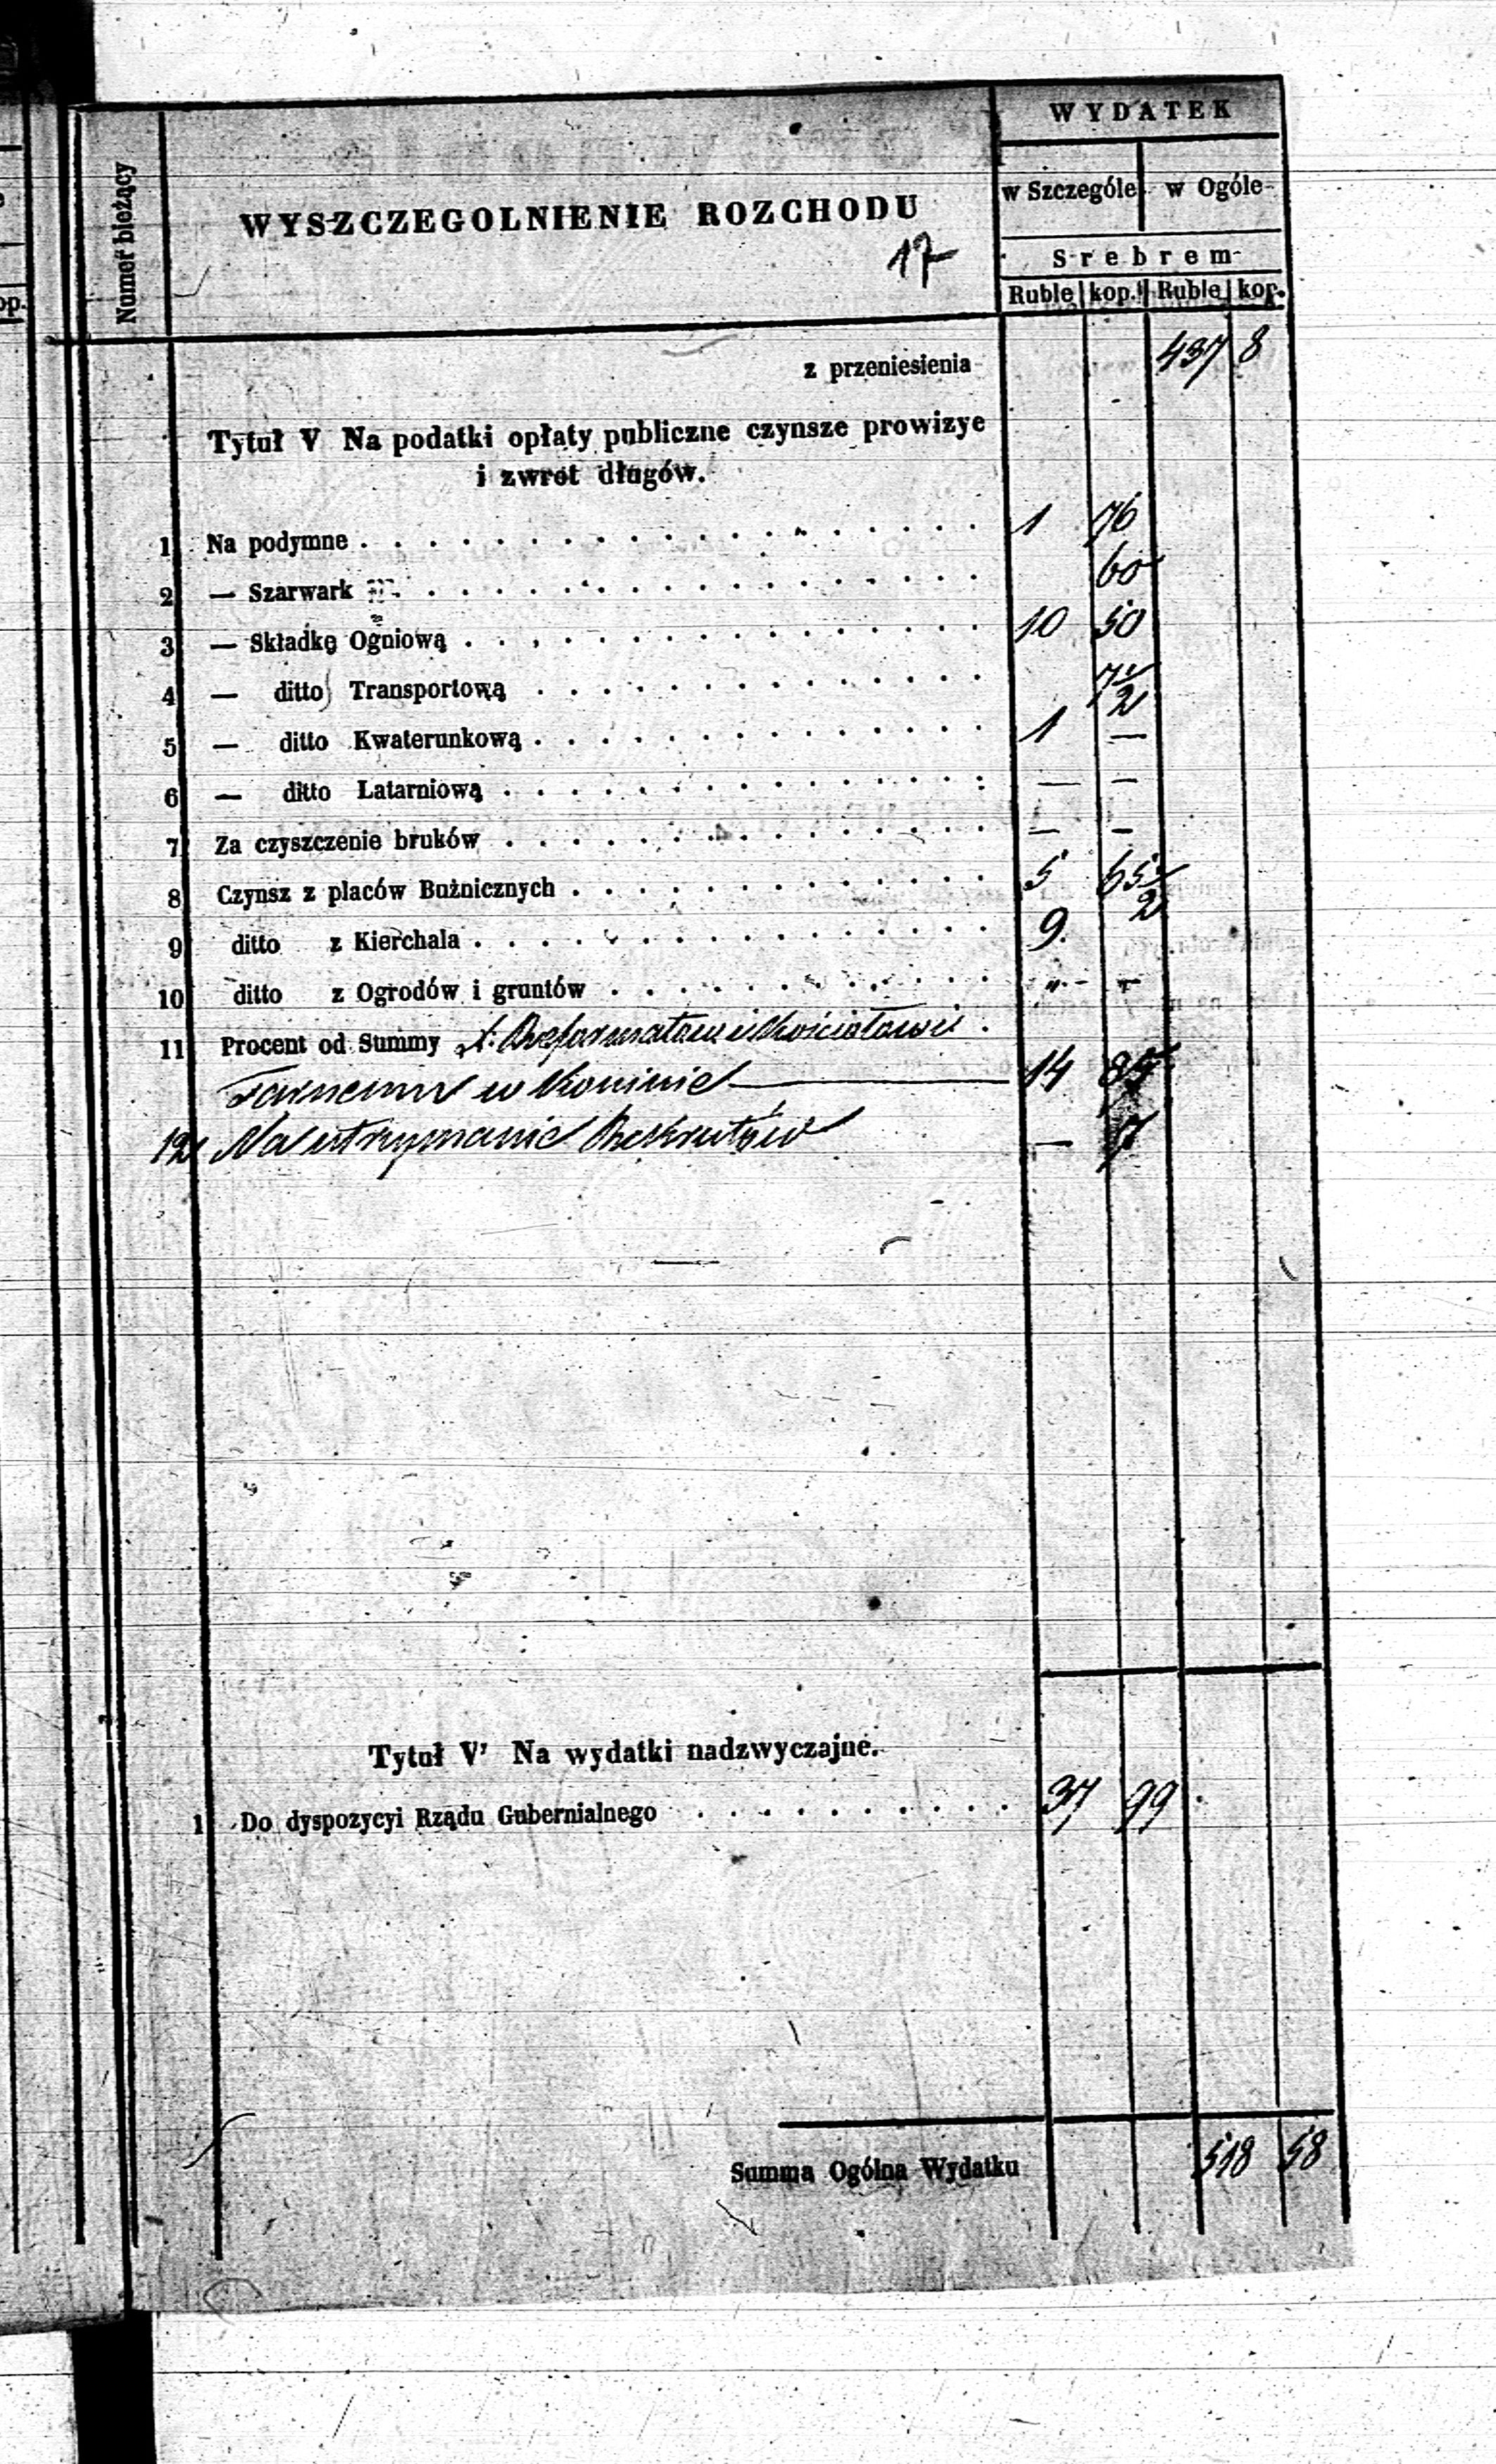 WYDATEK
Numer bieżący
WYSZCZEGOLNIENIE ROZCHODU
w Szczególe w Ogóle
17
Srebrem
Ruble kop. Ruble kop.
z przeniesienia 437 8
Tytuł V Na podatki opłaty publiczne czynsze prowizye
i zwrot długów.
1 Na podymne 1 76
2 — Szarwark 60
3 — Składkę Ogniową 10 50
4 — ditto Transportową 7 1/2
5 — ditto Kwaterunkową 1 —
6 — ditto Latarniową — —
7 Za czyszczenie bruków — —
8 Czynsz z placów Bużnicznych 5 65 1/2
9 ditto z Kierchala 9.
10 ditto z Ogrodów i gruntów „ „
11 Procent od Summy Reformatom i Kościołowi
Farnemu w Koninie 14 85
12 Na utrzymanie Rekrutów —
Tytuł V' Na wydatki nadzwyczajne.
1 Do dyspozycyi Rządu Gubernialnego 37 99
Summa Ogólna Wydatku 518 58